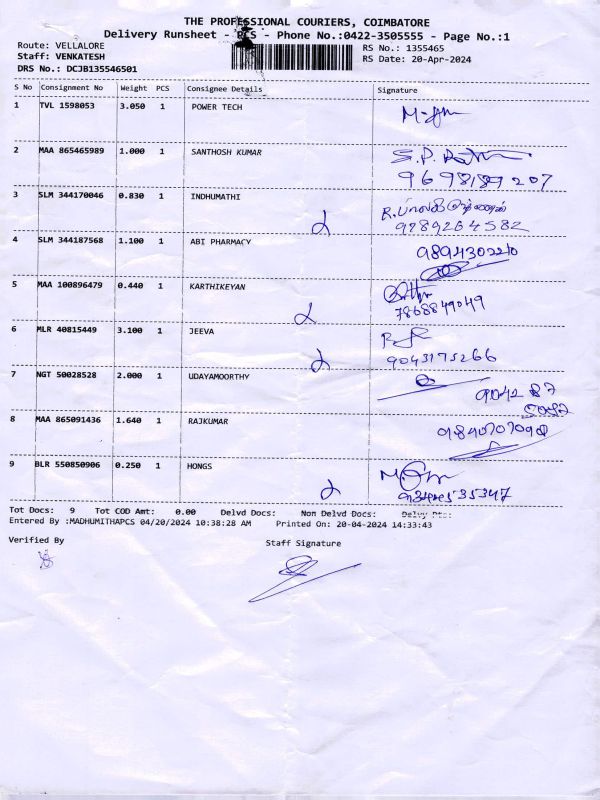 THE PROFESSIONAL COURIERS, COIMBATORE
Delivery Runsheet - PCS - Phone No.:0422-3505555 - Page No.:1
Route: VELLALORE
RS No.: 1355465
Staff: VENKATESH
RS Date: 20-Apr-2024
DRS No.: DCJB135546501
S No Consignment No Weight PCS Consignee Details Signature
1 TVL 1598053 3.050 1 POWER TECH
2 MAA 865465989 1.000 1 SANTHOSH KUMAR
9698189207
3 SLM 344170046 0.830 1 INDHUMATHI
9789264582
4 SLM 344187568 1.100 1 ABI PHARMACY
9894302210
5 MAA 100896479 0.440 1 KARTHIKEYAN
7868849049
6 MLR 40815449 3.100 1 JEEVA
9043175266
7 NGT 50028528 2.000 1 UDAYAMOORTHY
9042 87
8 MAA 865091436 1.640 1 RAJKUMAR
9 BLR 550850906 0.250 1 HONGS
Tot Docs: 9 Tot COD Amt: 0.00 Delvd Docs: Non Delvd Docs: Delvy Pts:
Entered By :MADHUMITHAPCS 04/20/2024 10:38:28 AM Printed On: 20-04-2024 14:33:43
Verified By
Staff Signature